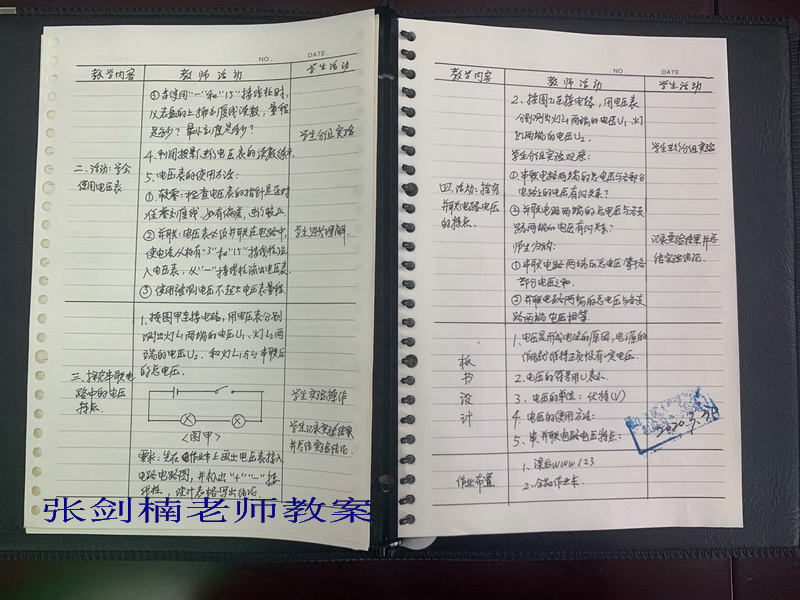 NO.
DATE.
教学内容 教师活动 学生活动
③当使用"-"和"15"接线柱时,
以表盘的上排刻度线读数, 量程
是多少? 最小刻度是多少?
学生分组实验
二、活动: 学会
使用电压表
5. 电压表的使用方法:
①校零: 检查电压表的指针是否对
准零刻度线, 如有偏差, 进行校正
②并联: 电压表必须并联在电路中,
使电流从标有"3"和"15"接线柱流
入电压表, 从"-"接线柱流出电压表.
学生思考理解
③使用被测电压不超出电压表量程
1. 按图甲连接电路, 用电压表分别
测出灯L₁两端的电压U₁、灯L₂两
端的电压U₂, 和灯L₁与L₂串联后
的总电压.
三、探究串联电
路中的电压
特点.
学生实验操作
<图甲>
学生记录实验结果
并总结实验结论.
要求: 先在作业本上画出电压表接入
电路电路图, 并标出"+""-"接
线柱, 设计表格写出结论.
张剑楠老师教案
NO.
DATE.
教学内容 教师活动 学生活动
2、按图乙连接电路, 用电压表
分别测出灯L₁两端的电压U₁、灯
L₂两端的电压U₂.
学生进行分组实验
学生分组实验观察:
四、活动: 探究
并联电路电压
的特点.
①串联电路两端的总电压与各部分
电路上的电压有何关系?
②并联电路两端的总电压与各支
路两端的电压有何关系?
师生归纳:
记录实验结果并总
结实验结论.
①串联电路两端的总电压等于各
部分电压之和.
②并联电路两端的总电压与各支
路两端电压相等.
板书设计
1、电压是形成电流的原因, 电源的
作用就是维持正负极有一定电压.
2、电压的符号用U表示
3、电压的单位: 伏特(V)
4、电压的使用方法:
5、串、并联电路电压特点:
作业布置
1、课后www 123